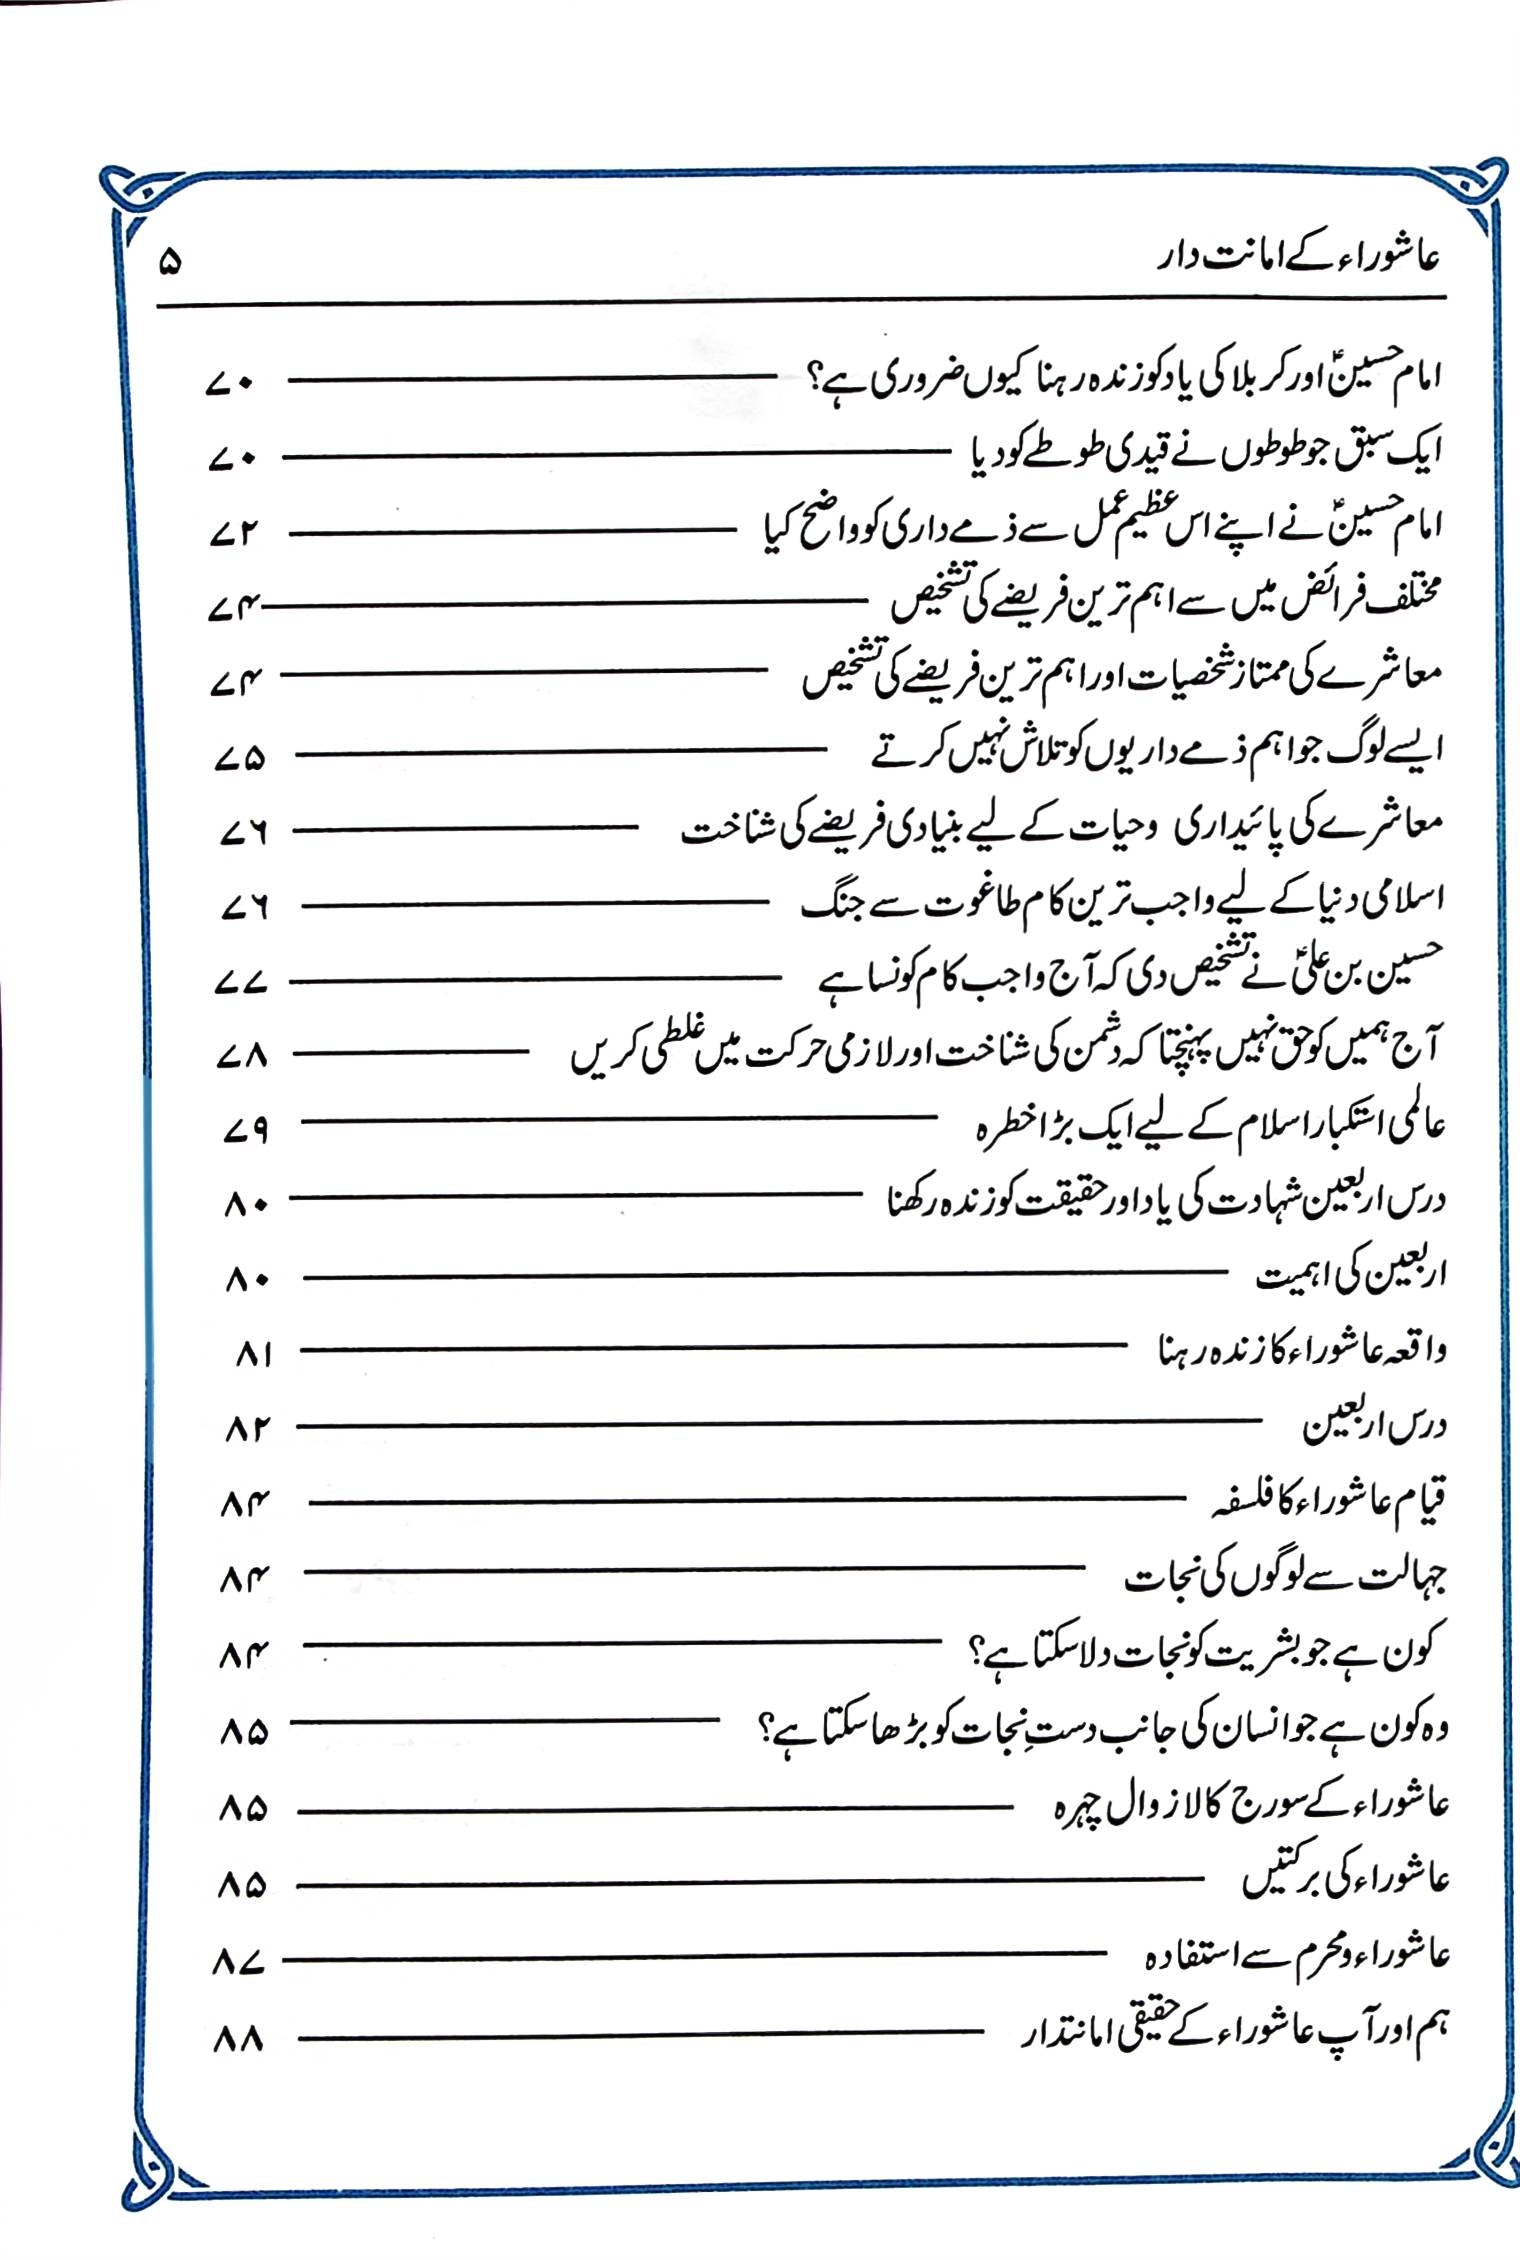 عاشوراء کے امانت دار ۵
امام حسینؑ اور کربلا کی یاد کو زندہ رہنا کیوں ضروری ہے؟ ۷۰
ایک سبق جو طوطوں نے قیدی طوطے کو دیا ۷۰
امام حسینؑ نے اپنے اس عظیم عمل سے ذمے داری کو واضح کیا ۷۲
مختلف فرائض میں سے اہم ترین فریضے کی تشخیص ۷۴
معاشرے کی ممتاز شخصیات اور اہم ترین فریضے کی تشخیص ۷۴
ایسے لوگ جو اہم ذمے داریوں کو تلاش نہیں کرتے ۷۵
معاشرے کی پائیداری و حیات کے لیے بنیادی فریضے کی شناخت ۷۶
اسلامی دنیا کے لیے واجب ترین کام طاغوت سے جنگ ۷۶
حسین بن علیؑ نے تشخیص دی کہ آج واجب کام کونسا ہے ۷۷
آج ہمیں کو حق نہیں پہنچتا کہ دشمن کی شناخت اور لازمی حرکت میں غلطی کریں ۷۸
عالمی استکبار اسلام کے لیے ایک بڑا خطرہ ۷۹
درس اربعین شہادت کی یاد اور حقیقت کو زندہ رکھنا ۸۰
اربعین کی اہمیت ۸۰
واقعہ عاشوراء کا زندہ رہنا ۸۱
درس اربعین ۸۲
قیام عاشوراء کا فلسفہ ۸۴
جہالت سے لوگوں کی نجات ۸۴
کون ہے جو بشریت کو نجات دلا سکتا ہے؟ ۸۴
وہ کون ہے جو انسان کی جانب دستِ نجات کو بڑھا سکتا ہے؟ ۸۵
عاشوراء کے سورج کا لازوال چہرہ ۸۵
عاشوراء کی برکتیں ۸۵
عاشوراء و محرم سے استفادہ ۸۷
ہم اور آپ عاشوراء کے حقیقی امانتدار ۸۸